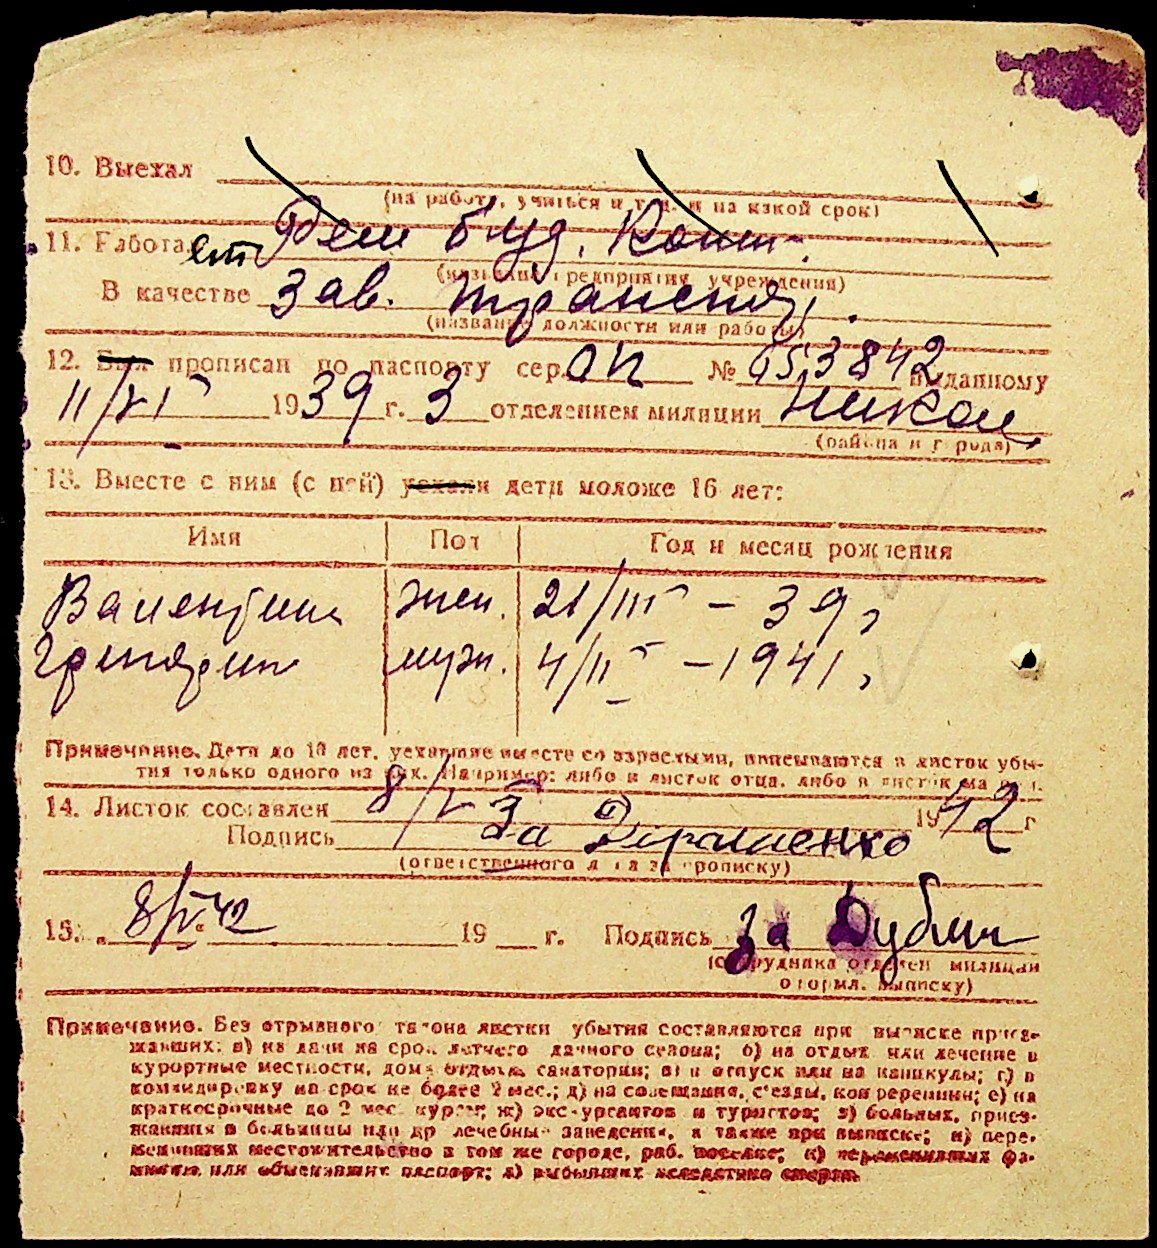 10. Выехал
(на работу, учиться и т. д. и на какой срок)
11. Работает Рем буд. Конт.
(название предприятия, учреждения)
В качестве Зав. транспор.
(название должности или работы)
12. Был прописан по паспорту сер. ОП № 653842 выданному
11/VI 1939 г. 3 отделением милиции Никол.
(района и города)
13. Вместе с ним (с ней) уехали дети моложе 16 лет:
Имя Пол Год и месяц рождения
Валентина жен. 21/III – 39
муж. 4/II – 1941
Примечание. Дети до 16 лет, уехавшие вместе со взрослыми, вписываются в листок убы-
тия только одного из них. Например: либо в листок отца, либо в листок матери.
14. Листок составлен 8/V 1942 г
Подпись За
(ответственного лица за прописку)
15. „ 8/V 42 19 г. Подпись за Дублин
(сотрудника отделен. милиции
оформл. выписку)
Примечание. Без отрывного талона листки убытия составляются при выписке приез-
жавших: а) на дачи на срок летнего дачного сезона; б) на отдых или лечение в
курортные местности, дома отдыха, санатории; в) в отпуск или на каникулы; г) в
командировку на срок не более 2 мес.; д) на совещания, съезды, конференции; е) на
краткосрочные до 2 мес. курсы; ж) экскурсантов и туристов; з) больных, приез-
жавших в больницы или др лечебные заведения, а также при выписке; и) пере-
менивших местожительство в том же городе, раб. поселке; к) переменивших фа-
милию или обменявших паспорт; л) выбывших вследствие смерти.